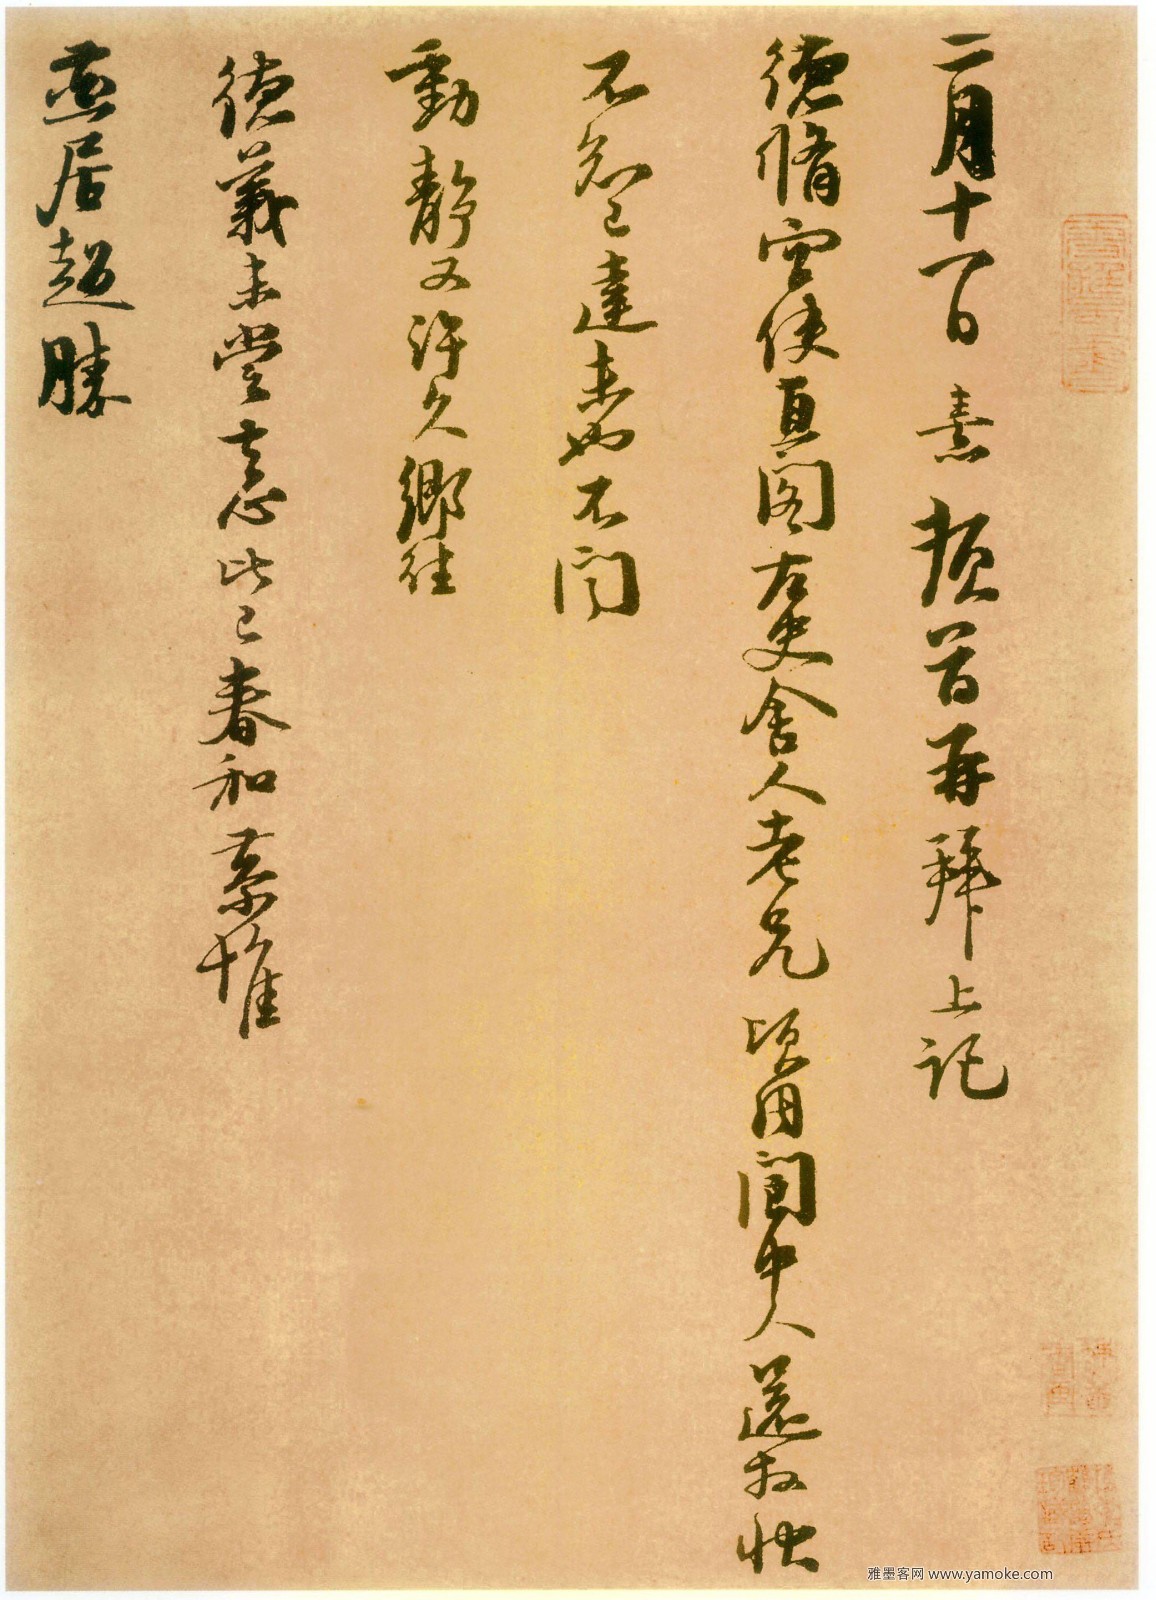 二月十一日熹頓首再拜上記
德脩宮使直閣左史舍人老兄頃因閬中人還狀
不知已達未也不聞
動靜又許久鄉往
德義未嘗去懷比已春和恭惟
燕居超勝
雅墨客网 www.yamoke.com